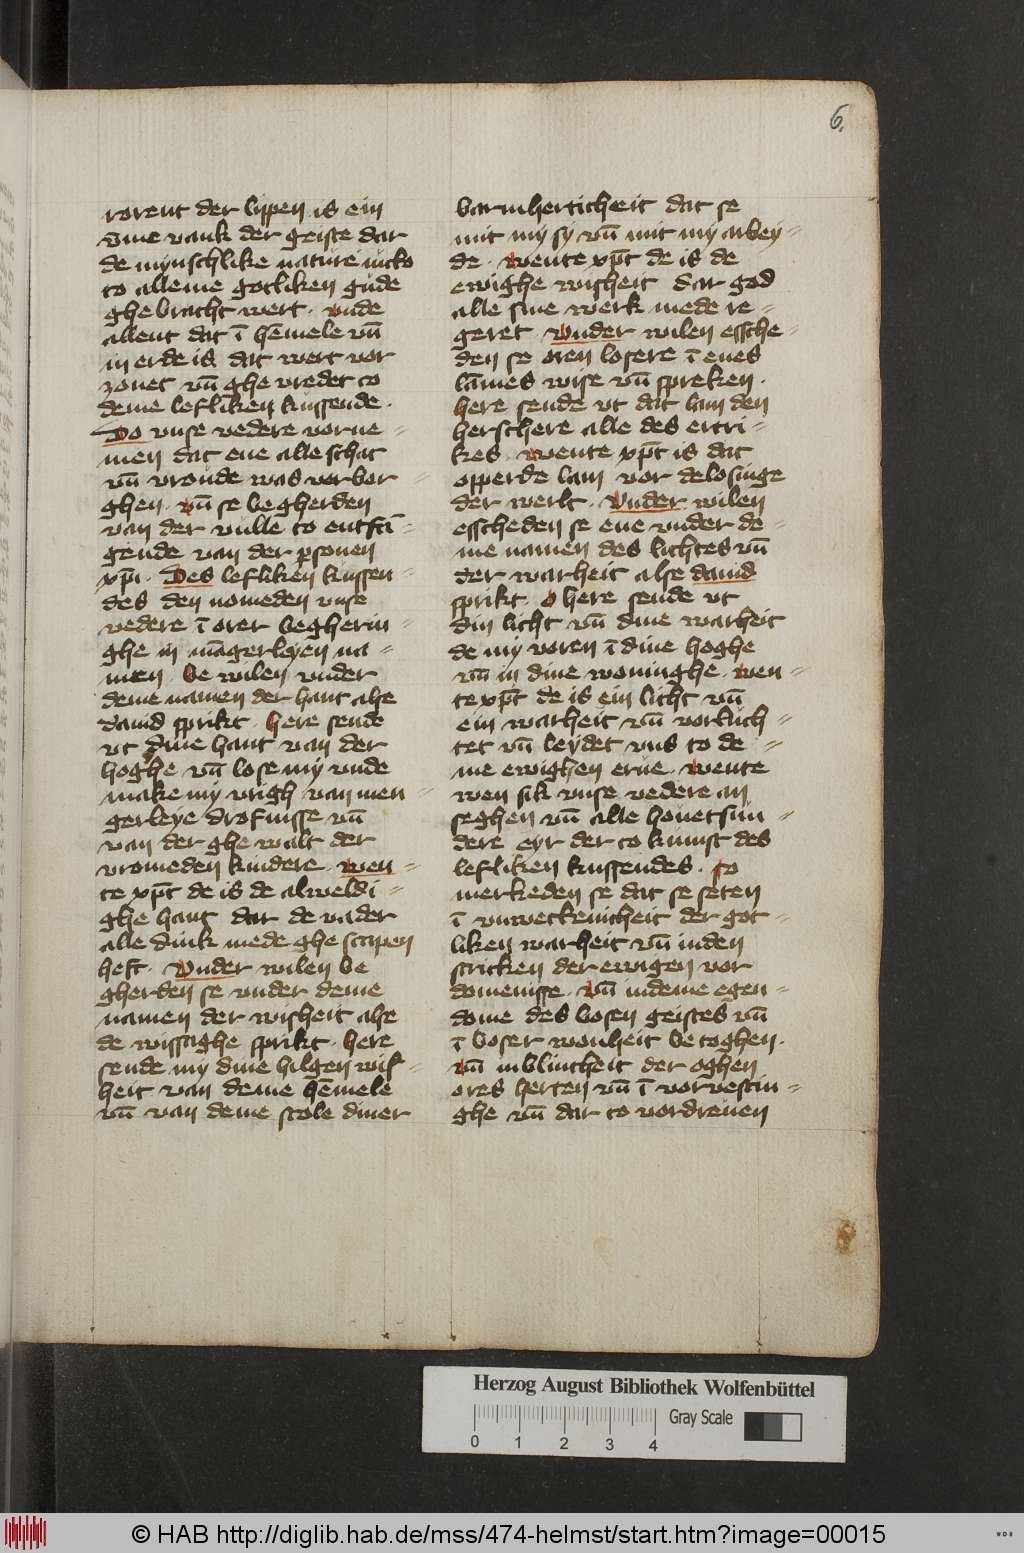 6.
rorent der lippen is ein
vme vank der geiste dar
de mynschlike nature nicko
to alleme gotliken gude
ghebracht wert. vnde
allent dat ī hēmele vn̄
in erde is dat wert vor
zonet vn̄ ghe vredet to
deme lefliken kussende.
Do vnse vedere vorne=
men dat ene alle schat
vn̄ vroude was vorbor=
ghen. vn̄ se begherden
van der vulle to entfā=
gende van der psonen
xp̄i. Des lefliken kussen=
des den nomeden vnse
vedere ī orer begherin=
ghe in māgerleyen na=
men. be wilen vnder
deme namen der hant alse
dauid sprikt. here sende
vt dine hant van der
hoghe vn̄ lose my vnde
make my vrigh van men=
gerleye drofnisse vn̄
van der ghe walt der
vromeden kindere. wen=
te xp̄c de is de alweldi=
ghe hant dar de vader
alle dink mede ghe scapen
heft. Vnder wilen be
gherden se vnder deme
namen der wisheit alse
de wissaghe sprikt. here
sende my dine hilgen wis=
heit van deme hēmele
vn̄ van deme stole diner
barmherticheit dat se
mit my sy vn̄ mit my arbey=
de. wente xp̄c de is de
ewighe wisheit dar god
alle sine werk mede re=
geret. Vnder wilen essche=
den se oren losere ī enes
lāmes wise vn̄ spreken.
here sende vt dat lam den
herschere alle des ertri=
kes. wente xp̄c is dat
opperde lam vor delosinge
der werlt. Vnder wilen
esscheden se ene vnder de=
me namen des lichtes vn̄
der warheit alse dauid
sprikt. o here sende vt
din licht vn̄ dine warheit
de my voren ī dine hoghe
vn̄ in dine woninghe. wen=
te xp̄c de is ein licht vn̄
ein warheit vn̄ vorluch=
tet vn̄ leydet vns to de=
me ewighen erue. wente
wen sik vnse vedere an
seghen vn̄ alle houetsun=
dere eyr der to kumst des
lefliken kussendes. so
merkeden se dat se seten
ī vnwetkenicheit der got=
liken warheit vn̄ inden
stricken der ewigen vor
domenisse. vn̄ indeme egen=
dome des bosen geistes vn̄
ī boser wonheit betoghen.
vn̄ inblintheit der oghen
ores herten vn̄ ī vorvestin=
ghe vn̄ dar to vordreuen
Herzog August Bibliothek Wolfenbüttel
Gray Scale
0 1 2 3 4
© HAB http://diglib.hab.de/mss/474-helmst/start.htm?image=00015